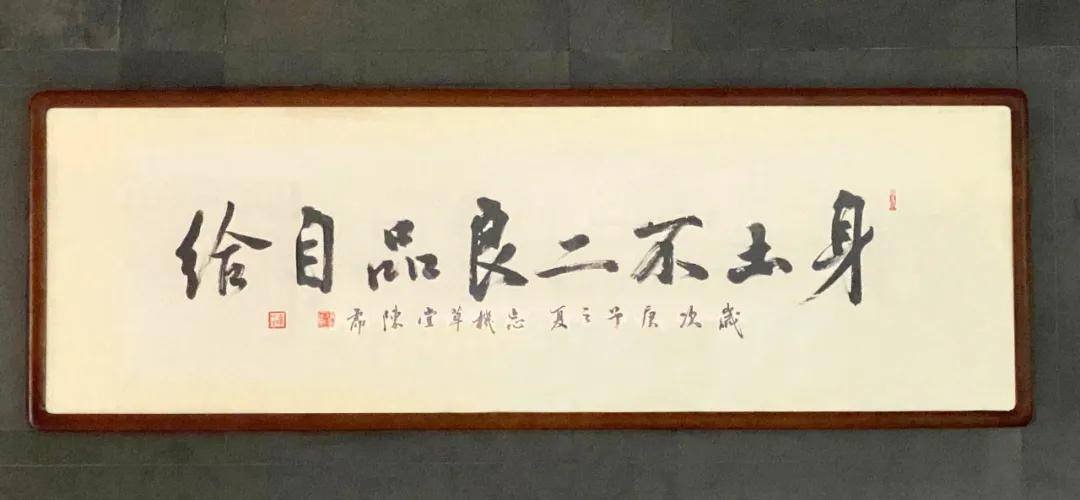 身土不二良品自給
歲次庚子之夏 忘機草堂 陳